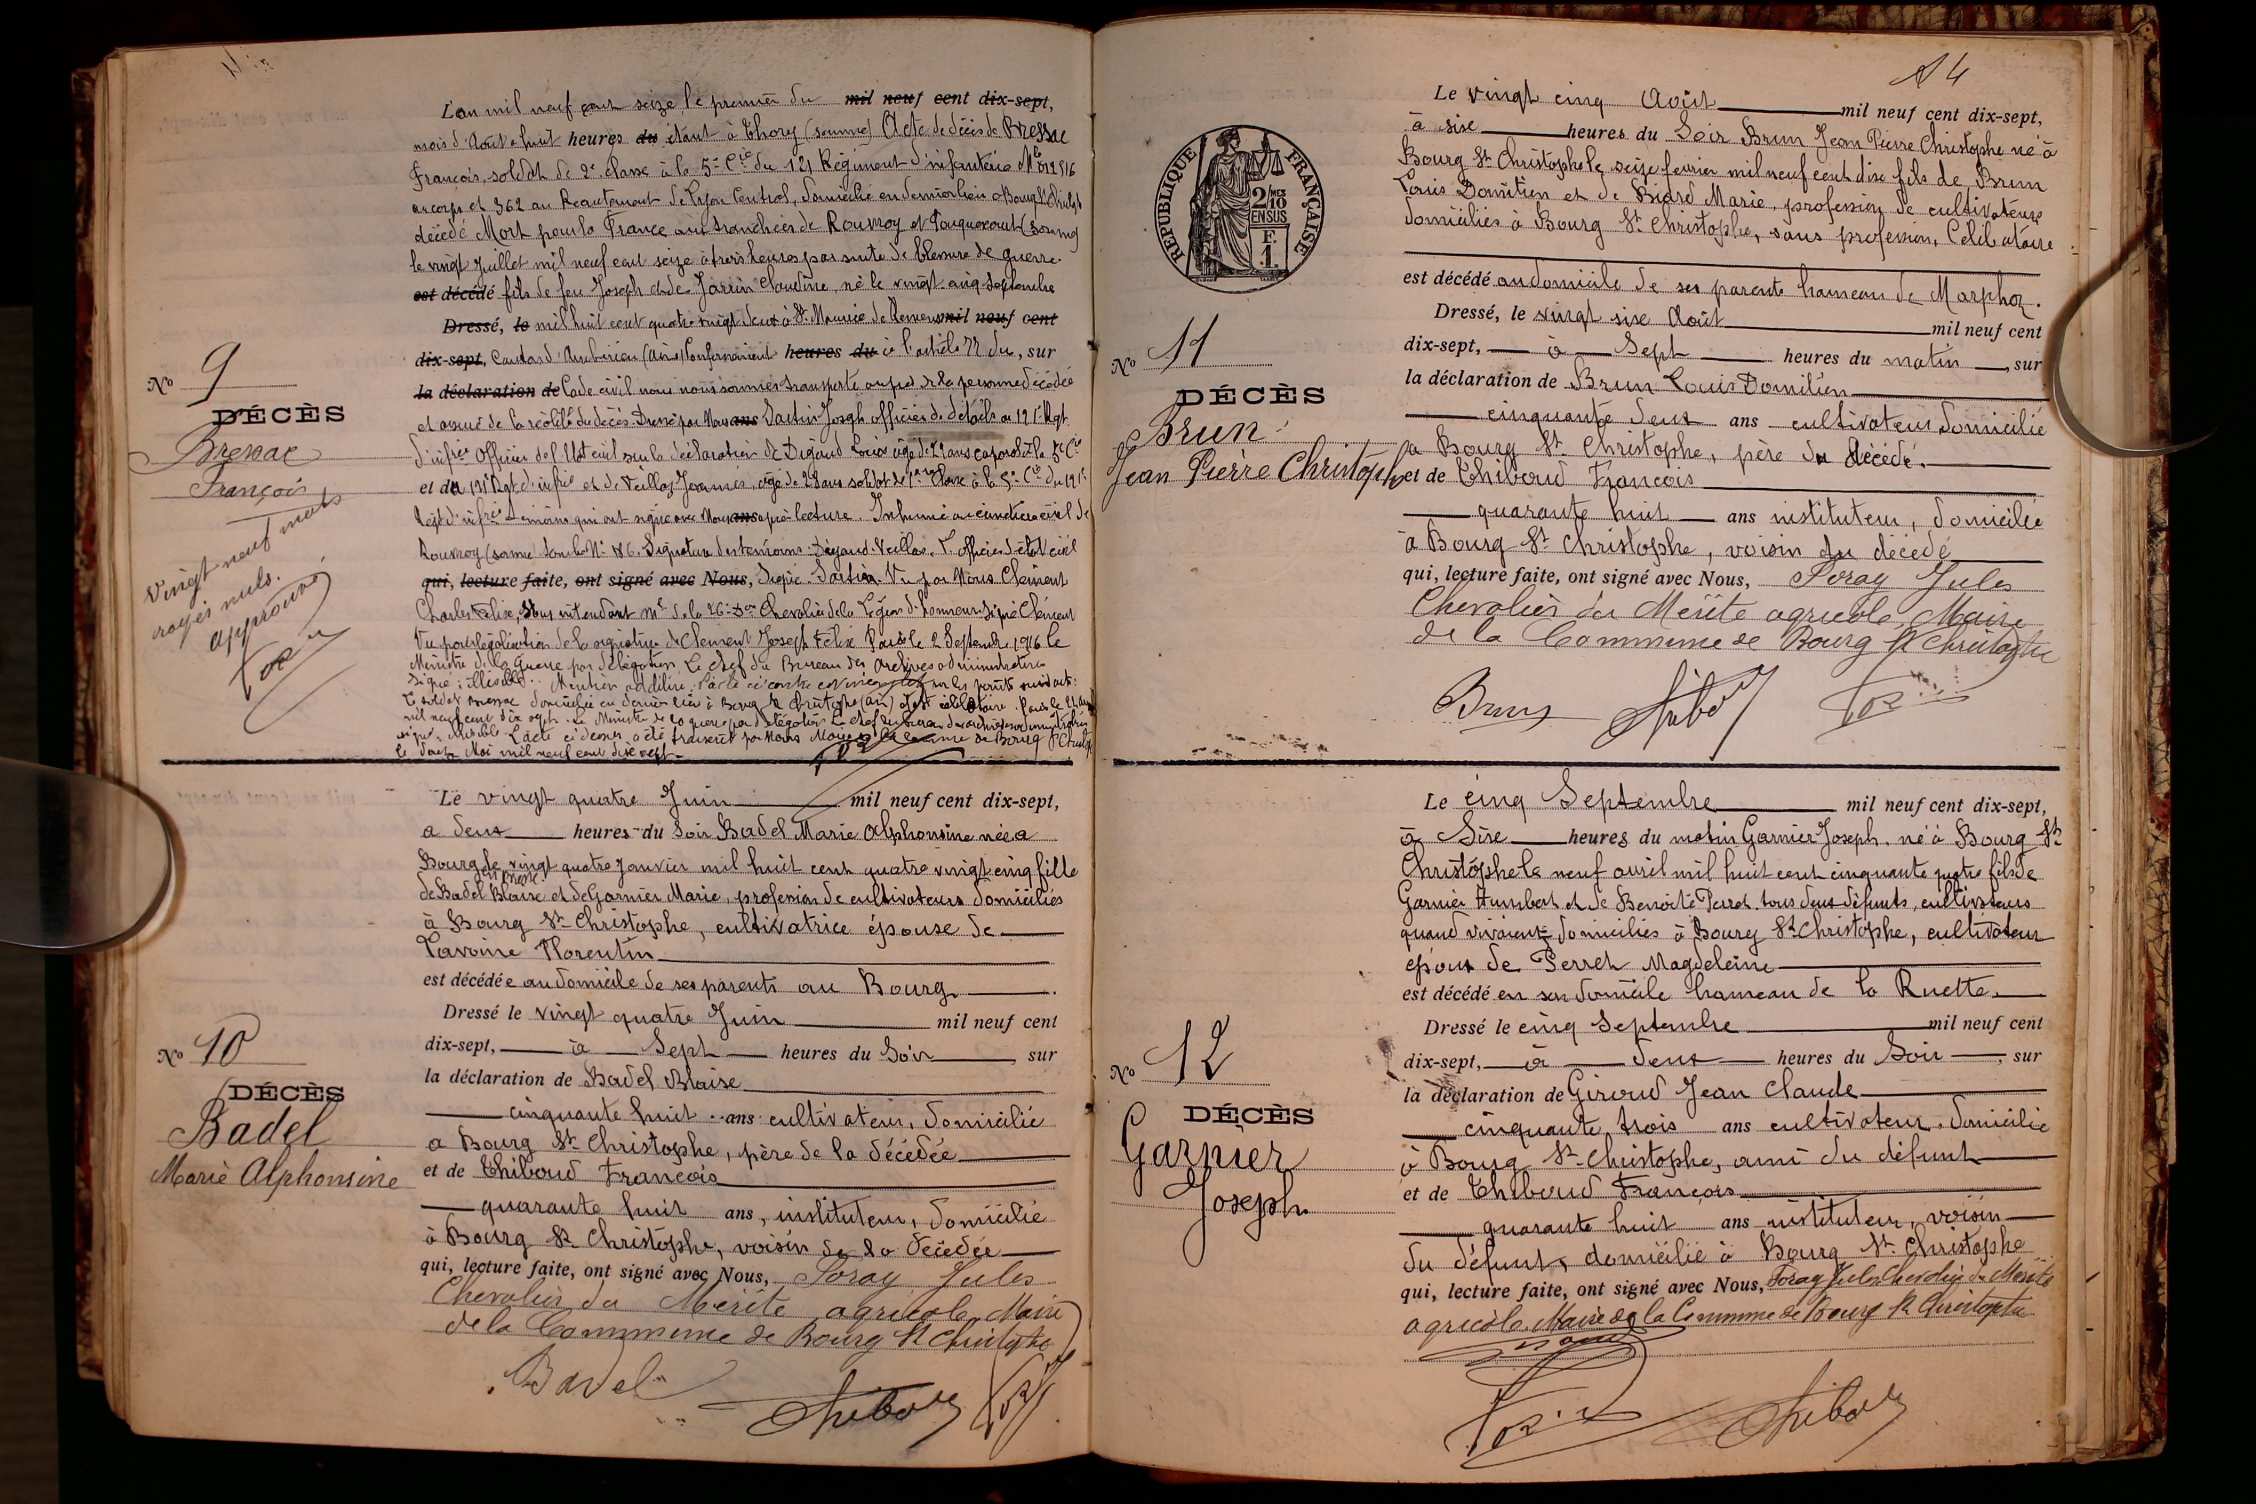 L'an mil neuf cent seize le premier du mil neuf cent dix-sept,
mois d'Août à huit heures du étant à Thory (somme) Acte de décès de Bressac
François soldat de 2e classe à la 5e Cie du 121 Régiment d'infanterie Mle 012516
au corps et 362 au Recrutement de Lyon Central, domicilié en dernier lieu à Bourg St Christ
décédé Mort pour la France aux tranchées de Rouvroy et Fouquescourt (somme)
le vingt Juillet mil neuf cent seize à trois heures par suite de blessure de guerre.
est décédé fils de feu Joseph et de Jarrin Claudine né le vingt-cinq Septembre
Dressé, le mil huit cent quatre vingt deux à St Maurice de Remens mil neuf cent
dix-sept, Canton d'Ambérieu (Ain) Conformément heures du à l'article 77 du, sur
la déclaration de Code civil nous nous sommes transporté auprès de la personne décédée
et assuré de la réalité du décès. Dressé par Nous ans Sartin Joseph officier de détails au 121e Rgt
d'infrie Officier de l'Etat civil sur la déclaration de Digaud Louis âgé de 21 ans caporal à la 5e Cie
et du 121e Rgt d'infrie et de Veillas Joannès, âgé de 28 ans soldat de 1ère Classe à la 5e Cie du 121e
Regt d'infrie témoins qui ont signé avec Nous ans après lecture. Inhumé au cimetière civil de
Rouvroy (somme) tombe No 186. Signature des témoins: Digaud. Veillas. L'officier d'état civil
qui, lecture faite, ont signé avec Nous, Signé. Sartin. Vu par Nous Clément
Charles Félix, Sous intendant mre de la 26e Don Chevalier de la Légion d'honneur. Signé Clément
Vu pour légalisation de la signature de Clément Joseph Félix Paris le 2 Septembre 1916 le
Ministre de la Guerre par délégation Le chef du Bureau des Archives administratives
Signé: illisible. Mention additive: l'acte ci contre est
Le soldat Bressac domicilié en dernier lieu à Bourg St Christophe (Ain) était célibataire. Paris le
mil neuf cent dix sept. Le Ministre de la guerre par délégation Le chef du bureau des archives administratives
signé. illisible. L'acte ci dessus a été transcrit par Nous Maire de la Commune de Bourg St Christ
le douze Mai mil neuf cent dix sept.
No 9
DÉCÈS
Bressac
François
Vingt neuf mots
rayés nuls.
approuvé
Le vingt quatre Juin mil neuf cent dix-sept,
a deux heures du Soir Badel Marie Alphonsine née a
Bourg en Bresse le vingt quatre Janvier mil huit cent quatre vingt cinq fille
de Badel Blaise et de Garnier Marie, profession de cultivateurs domiciliés
à Bourg St Christophe, cultivatrice épouse de
Lavoine Florentin
est décédée au domicile de ses parents au Bourg.
Dressé le vingt quatre Juin mil neuf cent
dix-sept, à Sept heures du Soir, sur
la déclaration de Badel Blaise
cinquante huit ans cultivateur, domicilié
a Bourg St Christophe, père de la décédée
et de Thiboud François
quarante huit ans, instituteur, domicilié
à Bourg St Christophe, voisin de la décédée
qui, lecture faite, ont signé avec Nous, Foray Jules
Chevalier du Mérite agricole Maire
de la Commune de Bourg St Christophe
Badel
No 10
DÉCÈS
Badel
Marie Alphonsine
14
RÉPUBLIQUE FRANÇAISE
2/10 MES
EN SUS
F.
1.
Le vingt cinq Août mil neuf cent dix-sept,
à six heures du Soir Brun Jean Pierre Christophe né à
Bourg St Christophe le seize fevrier mil neuf cent dix fils de Brun
Louis Domitien et de Biard Marie, profession de cultivateurs
domiciliés à Bourg St Christophe, sans profession, Célibataire
est décédé au domicile de ses parents hameau de Marphoz.
Dressé, le vingt six Août mil neuf cent
dix-sept, à Sept heures du matin, sur
la déclaration de Brun Louis Domitien
cinquante deux ans cultivateur domicilié
a Bourg St Christophe, père du décédé.
et de Thiboud François
quarante huit ans instituteur, domicilié
à Bourg St Christophe, voisin du décédé
qui, lecture faite, ont signé avec Nous, Foray Jules
Chevalier du Mérite agricole, Maire
de la Commune de Bourg St Christophe
Brun
No 11
DÉCÈS
Brun
Jean Pierre Christophe
Le cinq Septembre mil neuf cent dix-sept,
à Six heures du matin Garnier Joseph, né à Bourg St
Christophe le neuf avril mil huit cent cinquante quatre fils de
Garnier Humbert et de Benoite Perret tous deux défunts, cultivateurs
quand vivaient domiciliés à Bourg St Christophe, cultivateur
époux de Perret Magdeleine
est décédé en son domicile hameau de la Ruette.
Dressé le cinq Septembre mil neuf cent
dix-sept, à deux heures du Soir, sur
la déclaration de Giroud Jean Claude
cinquante trois ans cultivateur, domicilié
à Bourg St Christophe, ami du défunt
et de Thiboud François
quarante huit ans instituteur, voisin
du défunt, domicilié à Bourg St Christophe
qui, lecture faite, ont signé avec Nous, Foray Jules Chevalier du Mérite
agricole Maire de la Commune de Bourg St Christophe
No 12
DÉCÈS
Garnier
Joseph